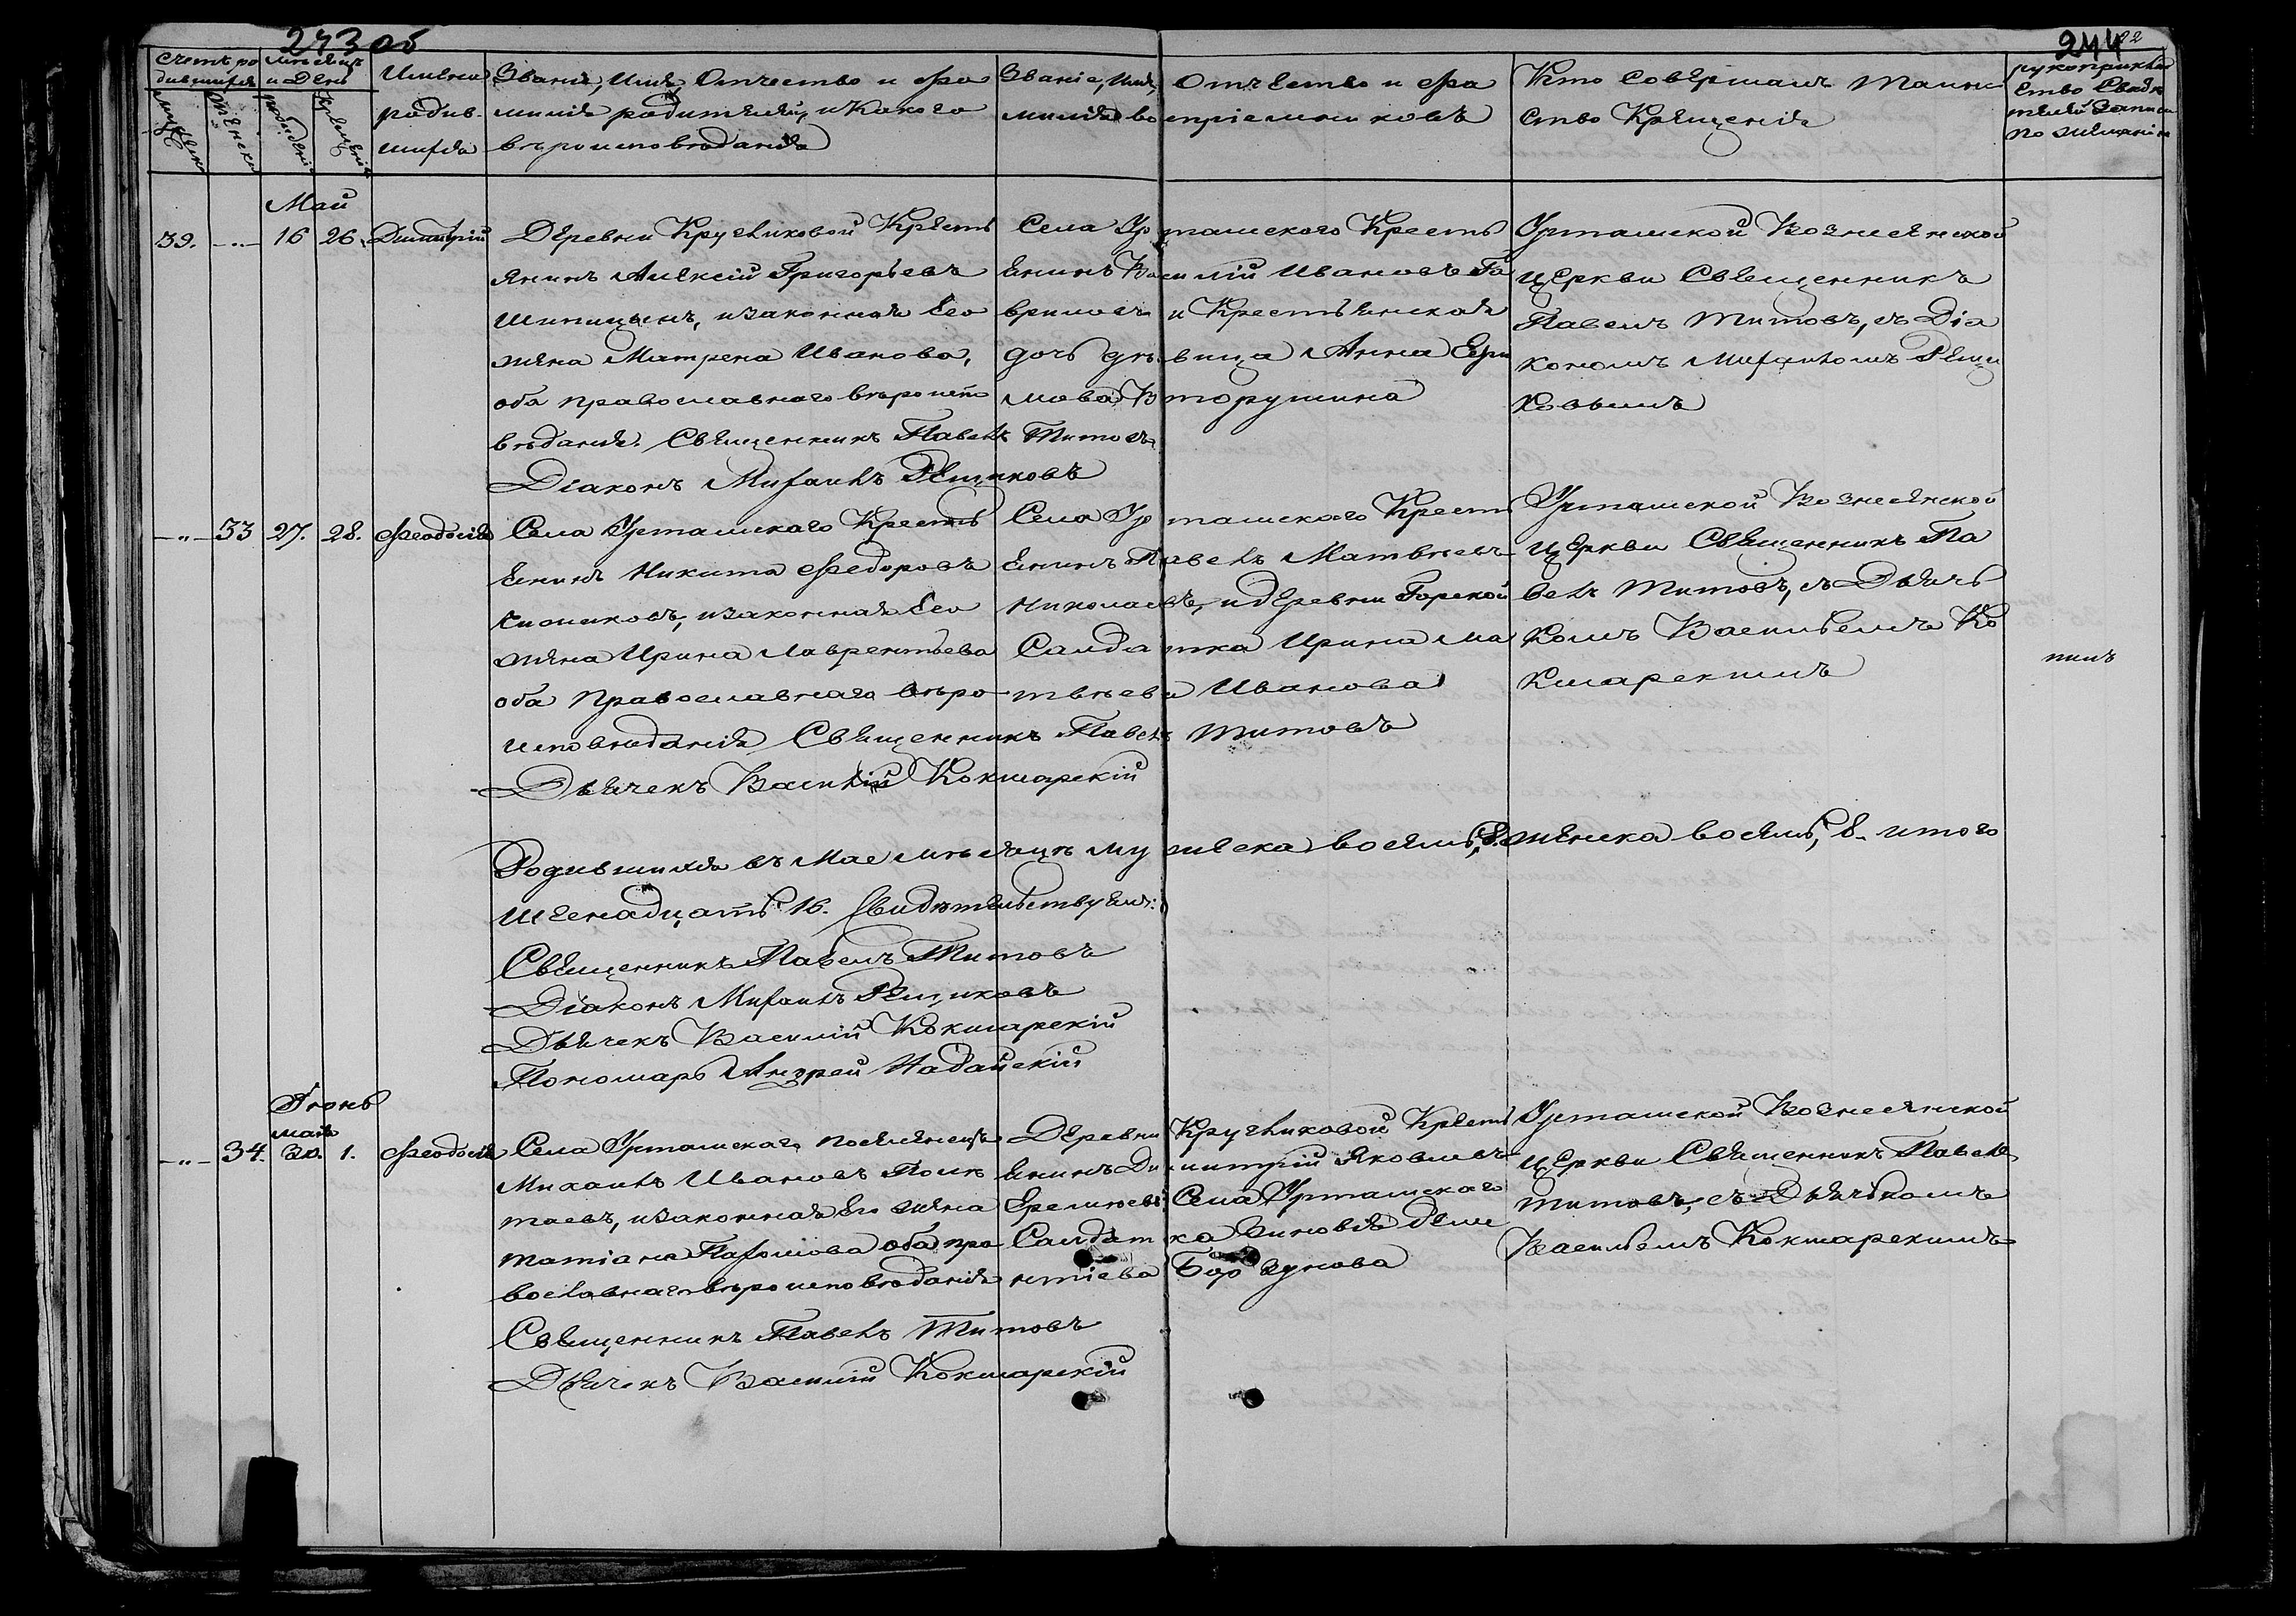 243 об
244
22
Счетъ ро
дившихся
Мужеска
Женска
Мѣсяцъ
и День
рожденія
Крещенія
Имена
родив-
шихся
Званіе, Имя, Отчество и фа
милія родителей, и какого
вѣроисповѣданія
Званіе, Имя, Отчество и фа
милія воспріемниковъ
Кто совершалъ Таин
ство Крещенія
рукоприклад
ство Свидѣ
телей записи
по желанію
Май
39. -"- 16 26. Димитрій
Деревни Кругликовой Кресть
янинъ Алексій Григорьевъ
Шипицынъ, изаконная Его
жена Матрена Иванова,
оба православнаго вѣроиспо
вѣданія. Священникъ Павелъ Титовъ
Діаконъ Михаилъ Рещиковъ
Села Уртамскаго Кресть
янинъ Василій Ивановъ Га
вриловъ и Крестьянская
дочь дѣвица Анна Ефи
мова Вторушина
Уртамской Вознесенской
Церкви Священникъ
Павелъ Титовъ, съ Діа
кономъ Михаиломъ Рещи
ковымъ
-"- 33 27. 28. Феодосія
Села Уртамскаго Кресть
янинъ Никита Федоровъ
изаконная Его
жена Ирина Лаврентьева
оба Православнаго вѣро-
исповѣданія Священникъ Павелъ Титовъ
Дьячекъ Василій Кокшарскій
Села Уртамскаго Кресть
янинъ Павелъ Матвѣевъ
Николаевъ, и деревни Горской
Салдатка Ирина Ма
твѣева Иванова
Уртамской Вознесенской
Церкви Священникъ Па
велъ Титовъ, съ Дьяч
комъ Васильемъ Ко
кшарскимъ
Родившихся въ Мае мѣсяцѣ мужеска восемь, 8. женска восемь, 8. итого
шеснадцать 16. Свидѣтельствуемъ:
Священникъ Павелъ Титовъ
Діаконъ Михаилъ Рещиковъ
Дьячекъ Василій Кокшарскій
Пономарь Андрей Надайскій
Іюнь
мая
-"- 34. 30. 1. Феодосія
Села Уртамскаго поселенецъ
Михаилъ Ивановъ Полк
таевъ, изаконная Его жена
Татіана Пахомова оба пра
вославнаго вѣроисповѣданія
Священникъ Павелъ Титовъ
Дьячекъ Василій Кокшарскій
Деревни Кругликовой Кресть
янинъ Димитрій Яковлевъ
Еремѣевъ, Села Уртамскаго
Салдатка Зиновія Деме
нтіева Борзунова
Уртамской Вознесенской
Церкви Священникъ Павелъ
Титовъ, съ Дьячкомъ
Васильемъ Кокшарскимъ